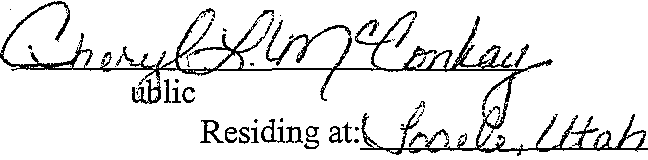 Cheryl L. McConkay
ublic
Residing at: Tooele, Utah